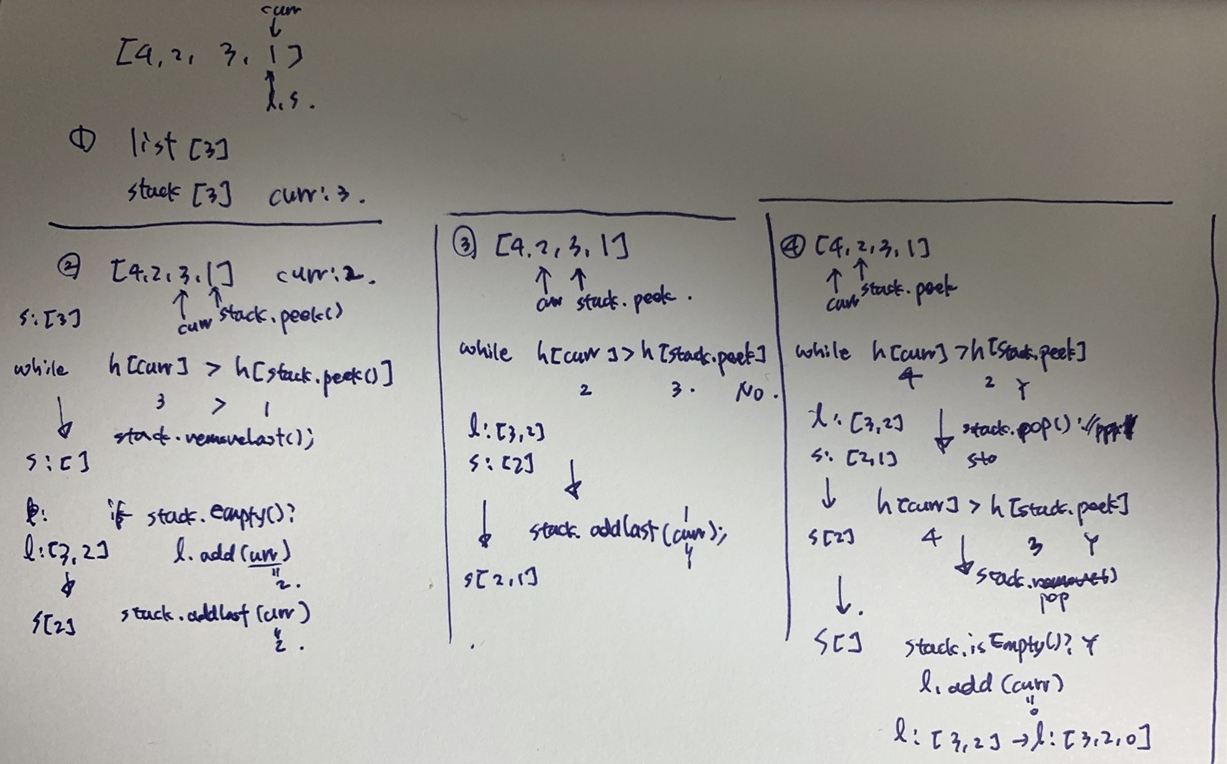 curr
[4, 2, 3, 1]
l, s.
① list [3]
stack [3] curr: 3.
② [4, 2, 3, 1] curr: 2.
curr stack.peek()
s: [3]
while h[curr] > h[stack.peek()]
3 > 1
stack.removeLast();
s: []
if stack.empty()?
l: [3, 2] l.add(curr)
2.
s[2] stack.addlast(curr)
2.
③ [4, 2, 3, 1]
curr stack.peek.
while h[curr] > h[stack.peek]
2 3. No.
l: [3, 2]
s: [2]
stack.addlast(curr);
1
s[2, 1]
④ [4, 2, 3, 1]
curr stack.peek
while h[curr] > h[stack.peek]
4 2 Y
l: [3, 2] stack.pop()
s: [2, 1] sto
h[curr] > h[stack.peek]
s[2] 4 3 Y
stack.
pop
s[] stack.isEmpty()? Y
l.add(curr)
0
l: [3, 2] → l: [3, 2, 0]